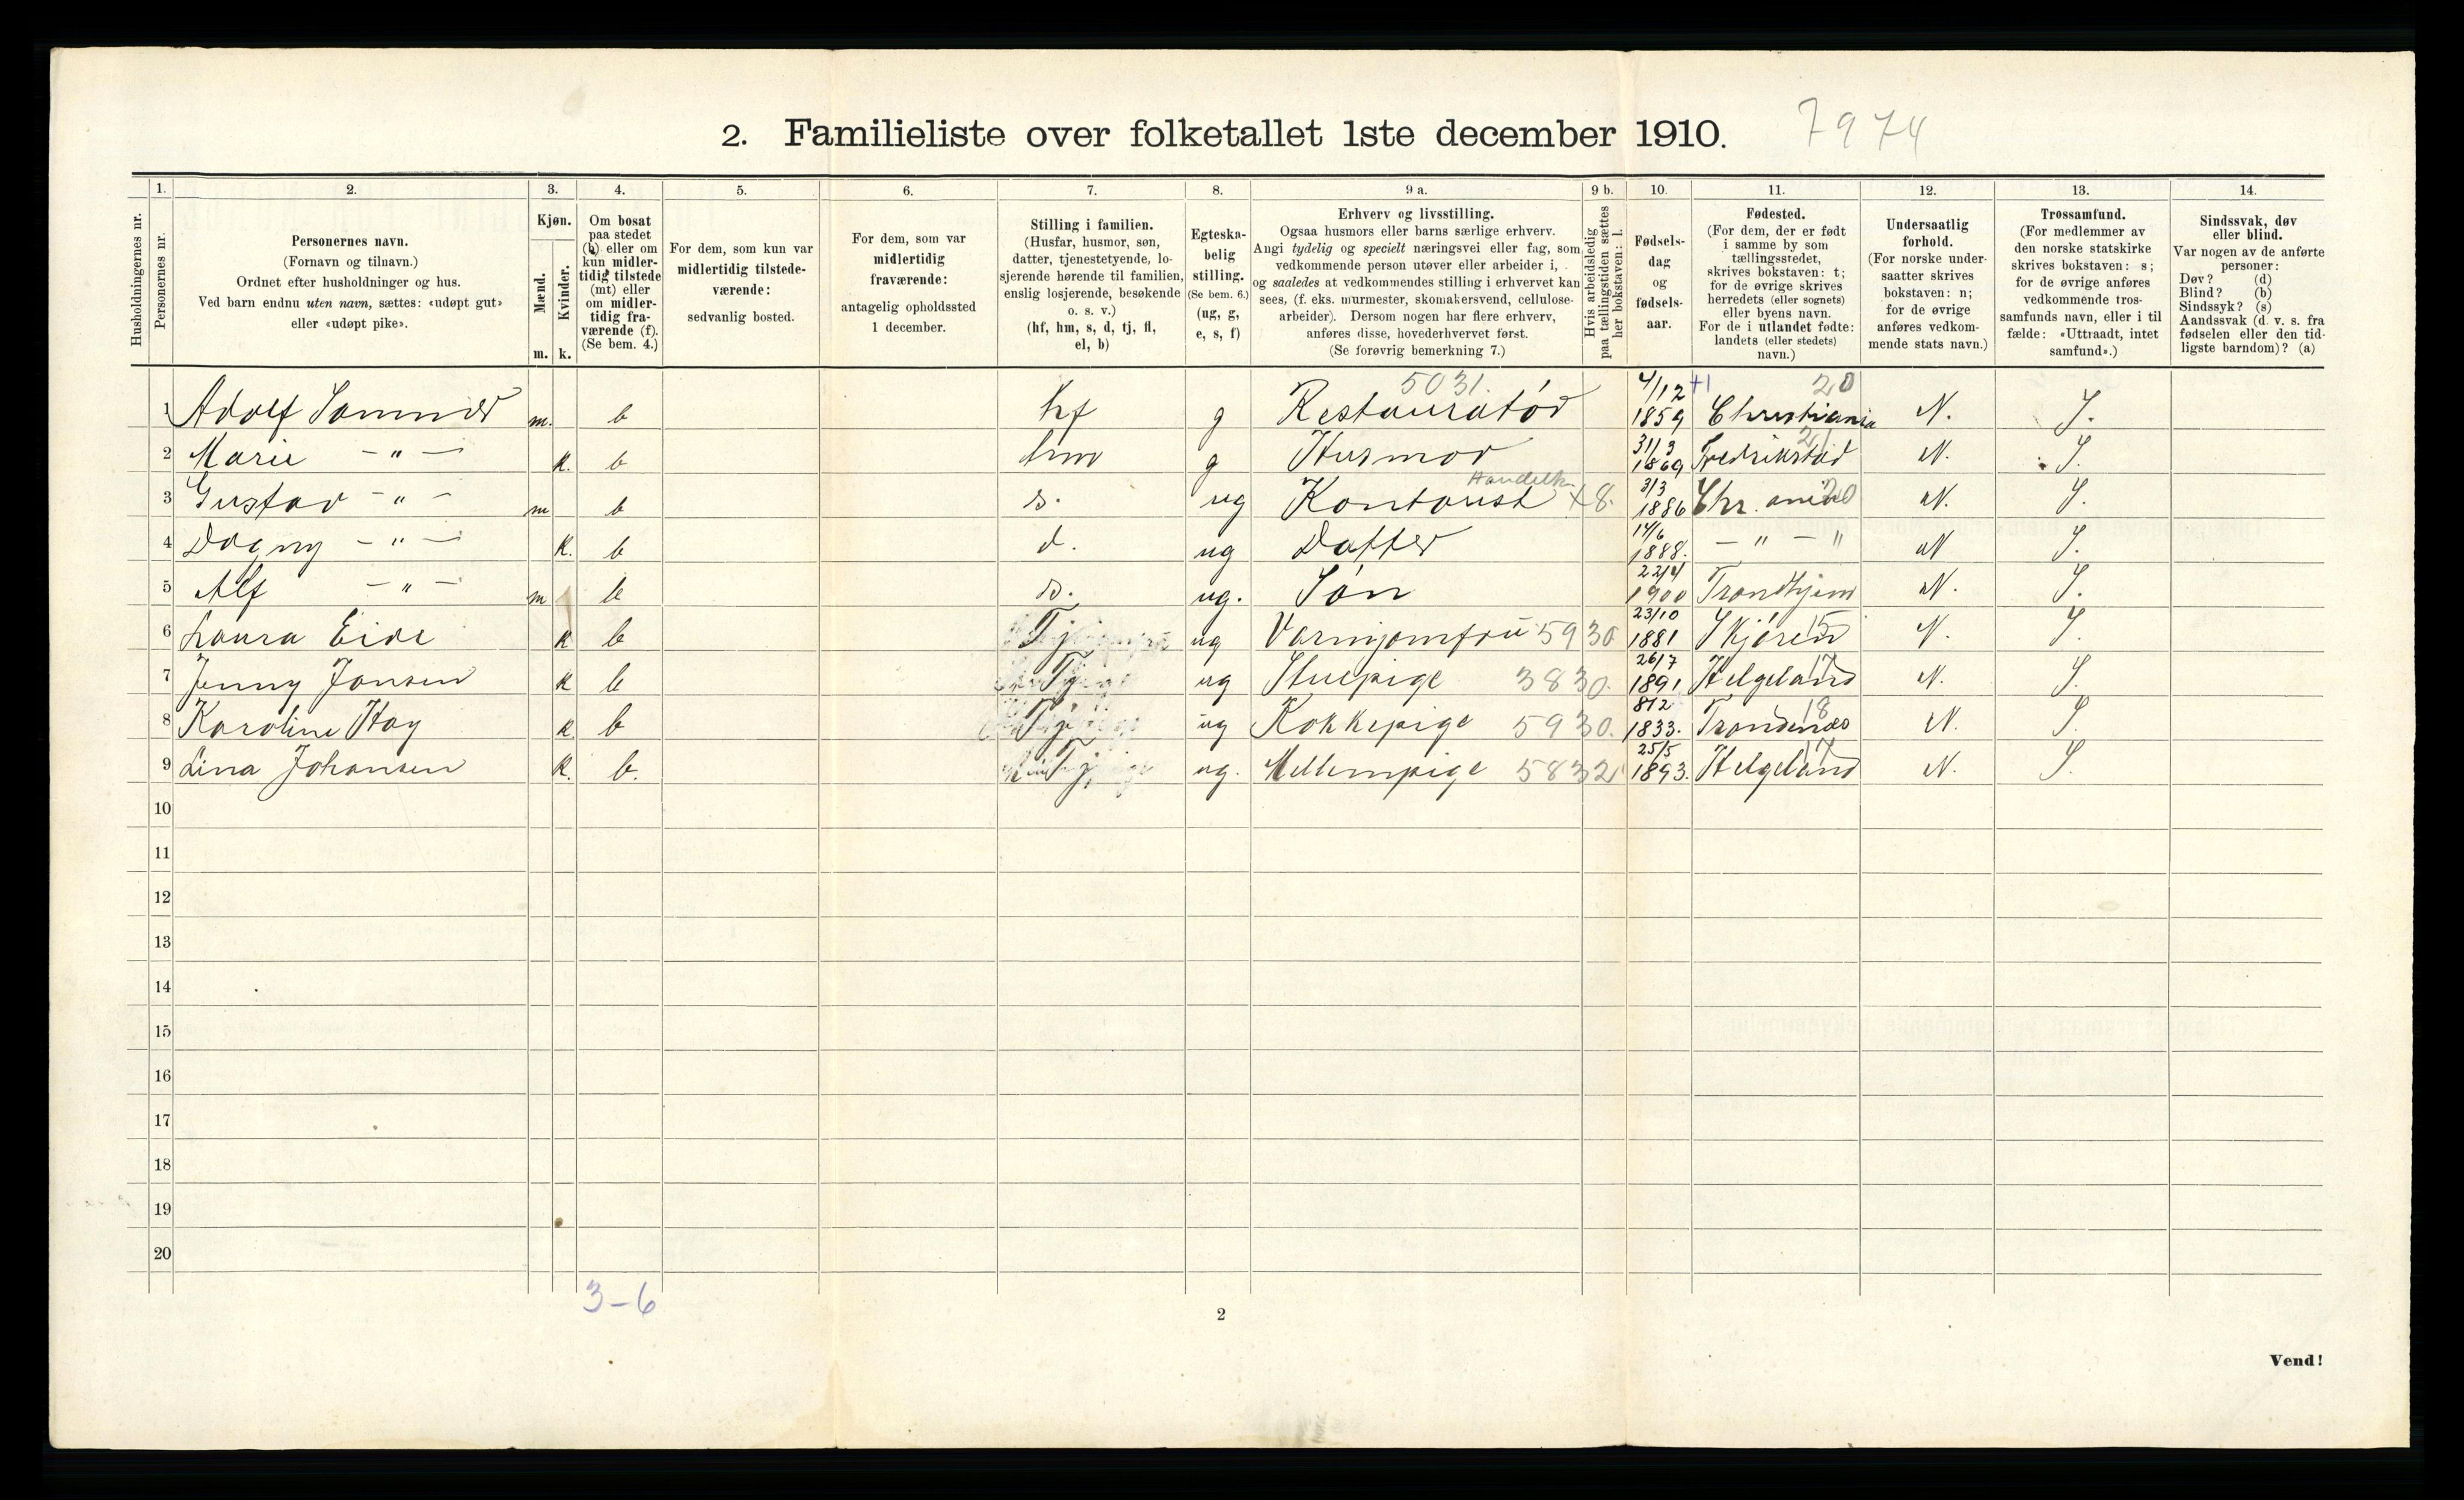 2. Familieliste over folketallet 1ste december 1910. 7974
Husholdningernes nr.
1. Personernes nr.
2. Personernes navn. (Fornavn og tilnavn.) Ordnet efter husholdninger og hus. Ved barn endnu uten navn, sættes: «udøpt gut» eller «udøpt pike».
3. Kjøn. Mænd. m. Kvinder. k.
4. Om bosat paa stedet (b) eller om kun midlertidig tilstede (mt) eller om midlertidig fraværende (f). (Se bem. 4.)
5. For dem, som kun var midlertidig tilstedeværende: sedvanlig bosted.
6. For dem, som var midlertidig fraværende: antagelig opholdssted 1 december.
7. Stilling i familien. (Husfar, husmor, søn, datter, tjenestetyende, losjerende hørende til familien, enslig losjerende, besøkende o. s. v.) (hf, hm, s, d, tj, fl, el, b)
8. Egteskabelig stilling. (Se bem. 6.) (ug, g, e, s, f)
9 a. Erhverv og livsstilling. Ogsaa husmors eller barns særlige erhverv. Angi tydelig og specielt næringsvei eller fag, som vedkommende person utøver eller arbeider i, og saaledes at vedkommendes stilling i erhvervet kan sees, (f. eks. murmester, skomakersvend, cellulosearbeider). Dersom nogen har flere erhverv, anføres disse, hovederhvervet først. (Se forøvrig bemerkning 7.)
9 b. Hvis arbeidsledig paa tællingstiden sættes her bokstaven: l.
10. Fødselsdag og fødselsaar.
11. Fødested. (For dem, der er født i samme by som tællingsstedet, skrives bokstaven: t; for de øvrige skrives herredets (eller sognets) eller byens navn. For de i utlandet fødte: landets (eller stedets) navn.)
12. Undersaatlig forhold. (For norske undersaatter skrives bokstaven: n; for de øvrige anføres vedkommende stats navn.)
13. Trossamfund. (For medlemmer av den norske statskirke skrives bokstaven: s; for de øvrige anføres vedkommende trossamfunds navn, eller i tilfælde: «Uttraadt, intet samfund».)
14. Sindssvak, døv eller blind. Var nogen av de anførte personer: Døv? (d) Blind? (b) Sindssyk? (s) Aandssvak (d. v. s. fra fødselen eller den tidligste barndom)? (a)
1 Adolf Sommer m. b hf g Restauratør 5031. 4/12 1859 +1 Christiania 20 N. S.
2 Marie —"— k. b hm g Husmor 31/3 1869 Fredrikstad 21 N. S.
3 Gustav —"— m b s. ug Kontorist Handelk. +8. 3/3 1886 Chr. ania 20 N. S.
4 Dagny —"— k. b d. ug Datter 14/6 1888. —"—" N S.
5 Alf —"— m b s. ug. Søn 22/4 1900 Trondhjem N. S.
6 Laura Eide k b Tj ug Varmjomfru 5930 23/10 1881 Skjøren 15 N. S.
7 Jenny Jansen k b Tj ug Stuepige 3830. 26/7 1891 Helgeland 17 N. S.
8 Karoline Hag k. b Tj ug Kokkepige 5930. 8/2 1833. Trondenæs 18 N. S.
9 Lina Johansen k. b. Tj ug. Mellempige 5832 25/5 1893. Helgeland 17 N. S.
10
11
12
13
14
15
16
17
18
19
20
3-6
2
Vend!